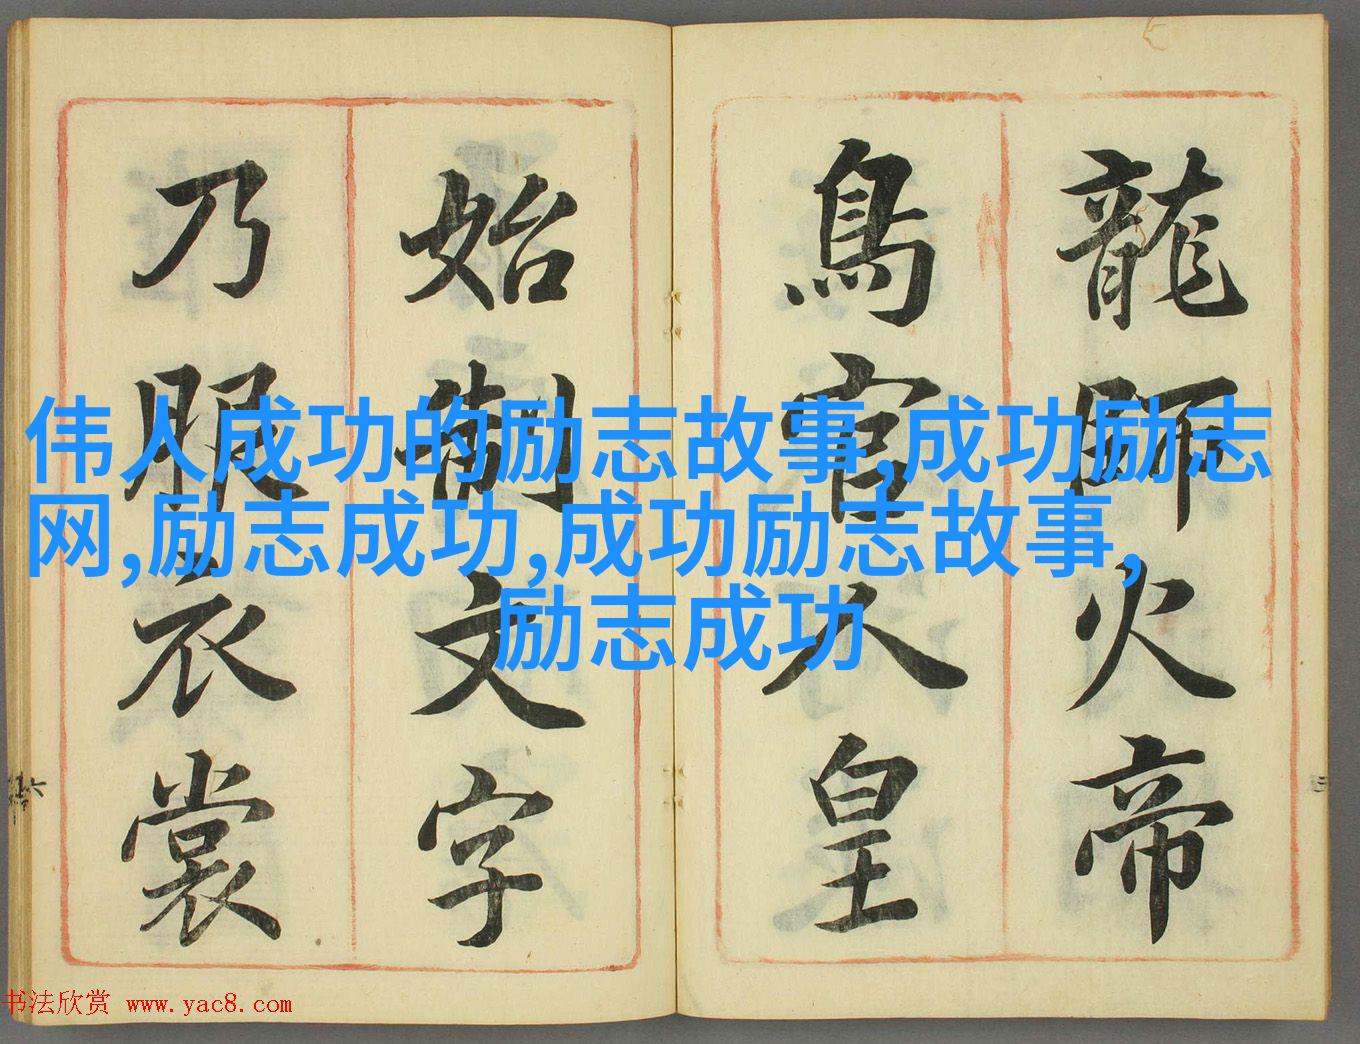 龍師火帝
鳥官人皇
始制文字
乃服衣裳
伟人成功的励志故事,成功励志
网,励志成功,成功励志故事,
励志成功
书法欣赏 www.yac8.com